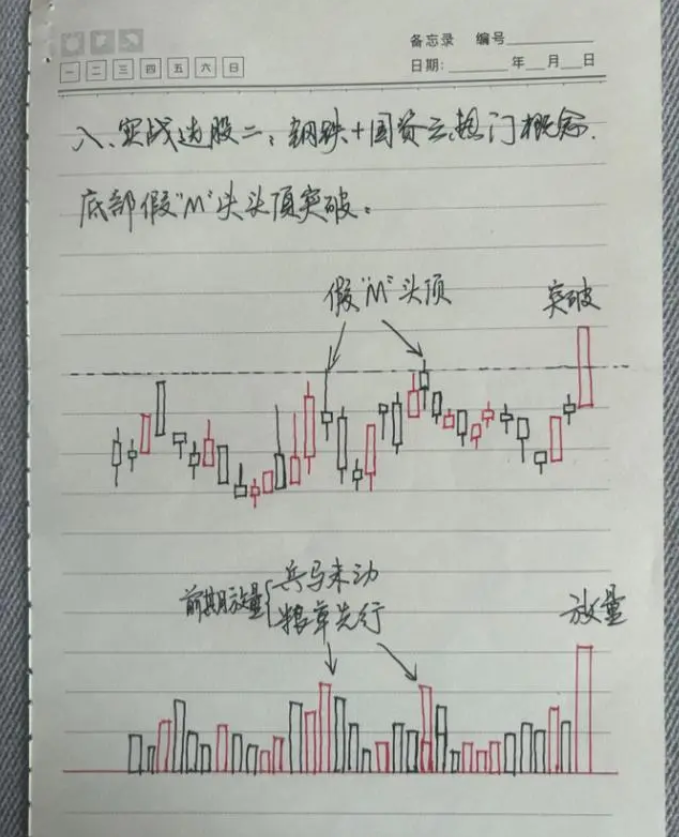 备忘录 编号
一 二 三 四 五 六 日
日期: 年 月 日
八、实战选股二：钢铁+国资云热门概念.
底部假"M"头头顶突破。
假"M"头顶
突破
前期放量{兵马未动
粮草先行
放量